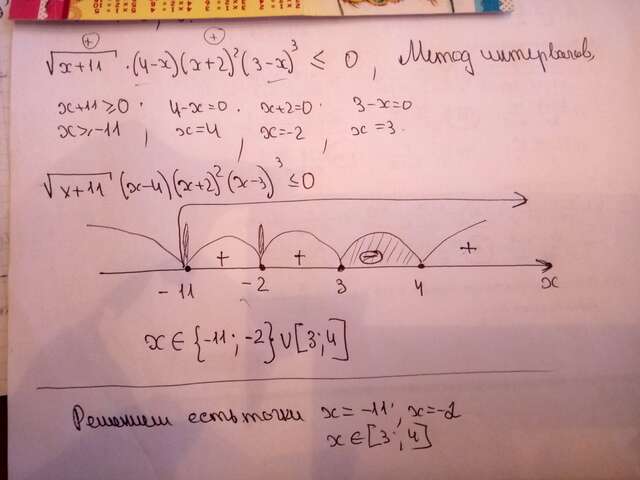 + +
√(x+11) · (4-x)(x+2)²(3-x)³ ≤ 0, Метод интервалов,
x+11 ≥ 0 · 4-x=0 · x+2=0 · 3-x=0
x ≥ -11, x=4, x=-2, x=3.
√(x+11) (x-4)(x+2)²(x-3)³ ≤ 0
+ + - +
-11 -2 3 4 x
x ∈ {-11; -2} ∪ [3; 4]
Решением есть точки x = -11; x = -2
x ∈ [3; 4]